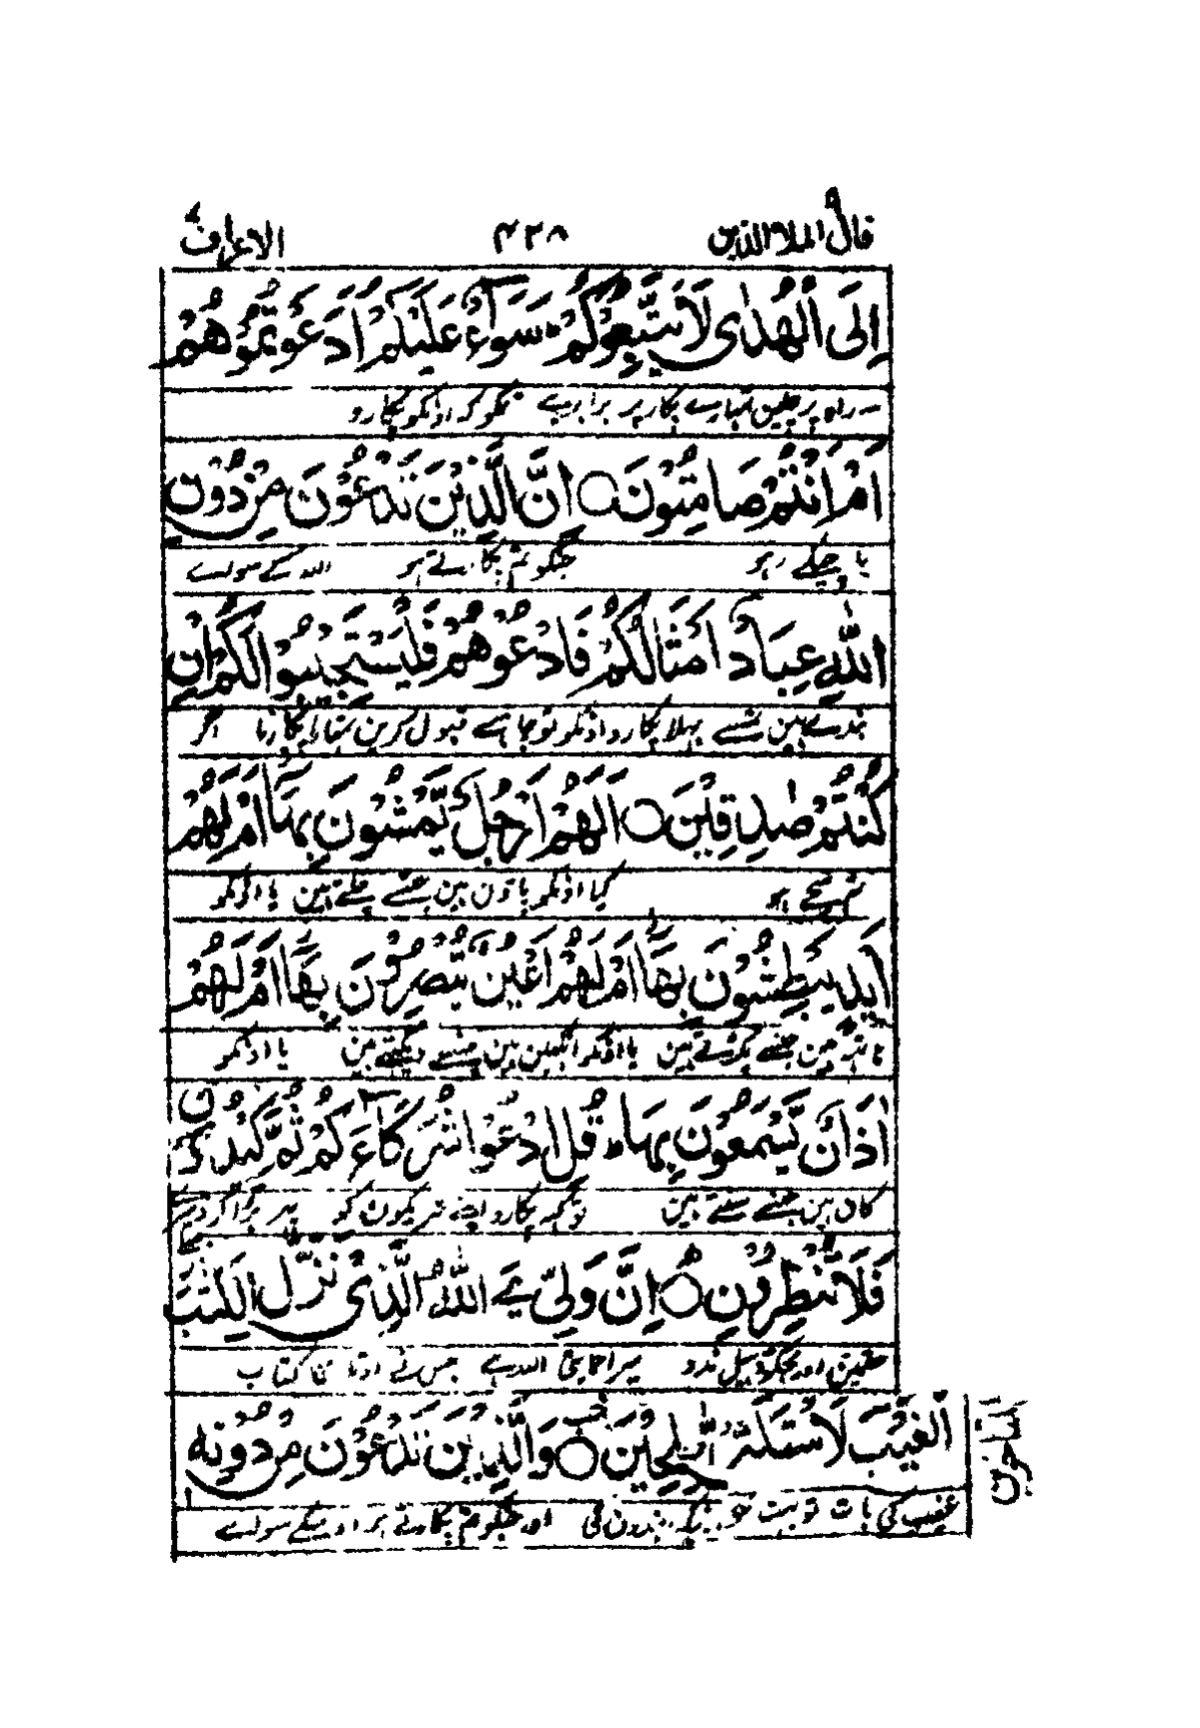 قال الملا الذین ۹ ۴۳۸ الاعراف ۷
اِلَى الْهُدٰى لَا يَتَّبِعُوْكُمْ ؕ سَوَآءٌ عَلَيْكُمْ اَدَعَوْتُمُوْهُمْ
راہ پر چلین تمہارے پکار پر برابر ہے تمکو کہ اونکو پکارو
اَمْ اَنْتُمْ صَامِتُوْنَ ○ اِنَّ الَّذِيْنَ تَدْعُوْنَ مِنْ دُوْنِ
یا چپکے رہو جنکو تم پکارتے ہو اللہ کے سوائے
اللّٰهِ عِبَادٌ اَمْثَالُكُمْ فَادْعُوْهُمْ فَلْيَسْتَجِيْبُوْا لَكُمْ اِنْ
بندے ہین تمسے بہلا پکارو اونکو تو چاہے قبول کرین تمہارا پکارنا اگر
كُنْتُمْ صٰدِقِيْنَ ○ اَلَهُمْ اَرْجُلٌ يَّمْشُوْنَ بِهَا اَمْ لَهُمْ
تم سچے ہو کیا اونکو پانون ہین جنسے چلتے ہین یا اونکو
اَيْدٍ يَّبْطِشُوْنَ بِهَا اَمْ لَهُمْ اَعْيُنٌ يُّبْصِرُوْنَ بِهَا اَمْ لَهُمْ
ہاتہہ ہین جنسے پکڑتے ہین یا اونکو آنکہین ہین جنسے دیکہتے ہین یا اونکو
اٰذَانٌ يَّسْمَعُوْنَ بِهَا ؕ قُلِ ادْعُوْا شُرَكَآءَكُمْ ثُمَّ كِيْدُوْنِ
کان ہین جنسے سنتے ہین تو کہہ پکارو اپنے شریکون کو پہر برا کرو
فَلَا تُنْظِرُوْنِ ○ اِنَّ وَلِيِّ‍َۧ اللّٰهُ الَّذِىْ نَزَّلَ الْكِتٰبَ
حقمین اور مجکو ڈہیل ندو میرا حمایتی اللہ ہے جس نے اوتارا کتاب
الْغَيْبَ لَاسْتَكْثَرْ الصّٰلِحِيْنَ ○ وَالَّذِيْنَ تَدْعُوْنَ مِنْ دُوْنِهٖ
غیب کی بات تو بہت نیک بندون کی اور جنکو تم پکارتے ہو اوسکے سوائے